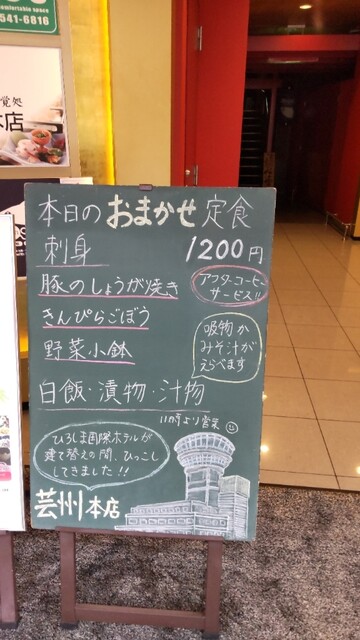 541-6816
omfortable space
覚処
本店
本日の おまかせ 定食
刺身
1200円
豚のしょうが焼き
アフターコーヒー
サービス!!
きんぴらごぼう
吸物か
みそ汁が
えらべます
野菜小鉢
白飯・漬物・汁物
11時より営業
ひろしま国際ホテルが
建て替えの間、ひっこし
してきました!!
芸州本店